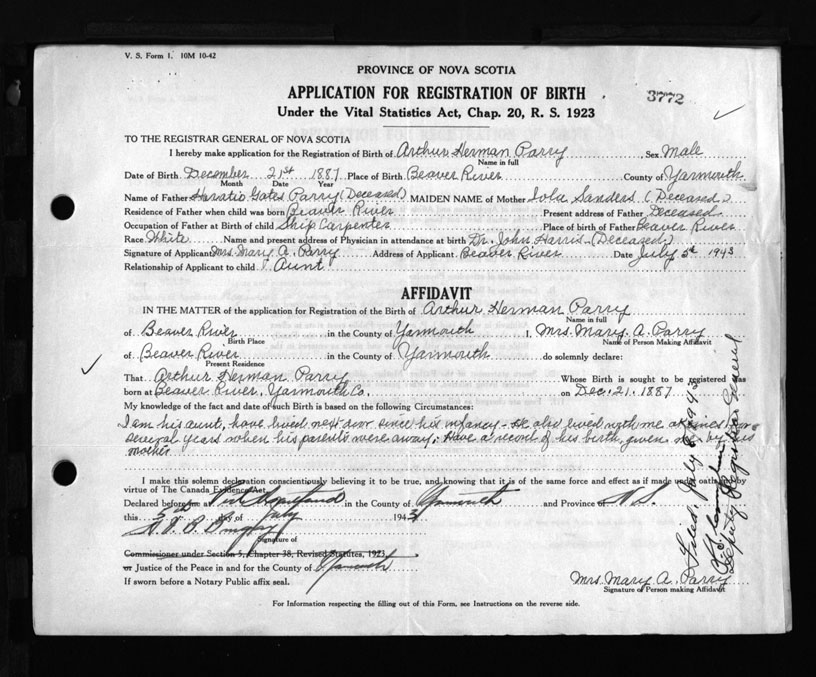 V. S. Form 1. 10M 10-42
PROVINCE OF NOVA SCOTIA
APPLICATION FOR REGISTRATION OF BIRTH
3772
Under the Vital Statistics Act, Chap. 20, R. S. 1923
TO THE REGISTRAR GENERAL OF NOVA SCOTIA
I hereby make application for the Registration of Birth of Arthur Herman Parry Sex Male
Name in full
Date of Birth December 21st 1887 Place of Birth Beaver River County of Yarmouth
Month Date Year
Name of Father Horatio Gates Parry (Deceased) MAIDEN NAME of Mother Sanders (Deceased)
Residence of Father when child was born Beaver River Present address of Father Deceased
Occupation of Father at Birth of child Ship Carpenter Place of birth of Father Beaver River
Race White Name and present address of Physician in attendance at birth Dr. John Harris (Deceased.)
Signature of Applicant Mrs. Mary A. Parry Address of Applicant Beaver River Date July 5th 1943
Relationship of Applicant to child Aunt
AFFIDAVIT
IN THE MATTER of the application for Registration of the Birth of Arthur Herman Parry
Name in full
of Beaver River in the County of Yarmouth I, Mrs. Mary. A. Parry
Birth Place Name of Person Making Affidavit
of Beaver River in the County of Yarmouth do solemnly declare:
Present Residence
That Arthur Herman Parry Whose Birth is sought to be registered was
born at Beaver River, Yarmouth Co. on Dec. 21. 1887
My knowledge of the fact and date of such Birth is based on the following Circumstances:
I am his aunt, have lived next door since his infancy - He also lived with me at times for
several years when his parents were away. Have a record of his birth, given me by his
mother
I make this solemn declaration conscientiously believing it to be true, and knowing that it is of the same force and effect as if made under oath and by
virtue of The Canada Evidence Act.
Declared before me at Port Maitland in the County of Yarmouth and Province of N.S.
this 5th day of July 1943
Signature of
Commissioner under Section 5, Chapter 38, Revised Statutes, 1923
or Justice of the Peace in and for the County of Yarmouth
If sworn before a Notary Public affix seal.
Mrs. Mary A. Parry
Signature of Person making Affidavit
For Information respecting the filling out of this Form, see Instructions on the reverse side.
Filed, July 1943
Deputy Registrar General